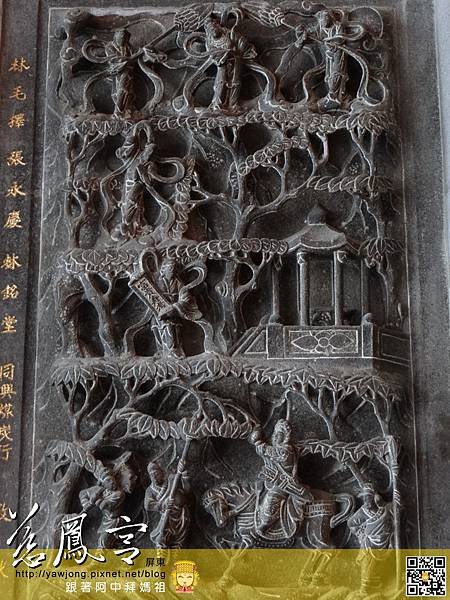 林毛擇 張永慶 林銘堂 同興煤炭行
鳳宮
屏東
http://yawjong.pixnet.net/blog
跟著阿中拜媽祖